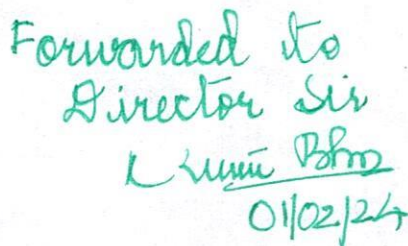 Forwarded to
Director Sir
01/02/24